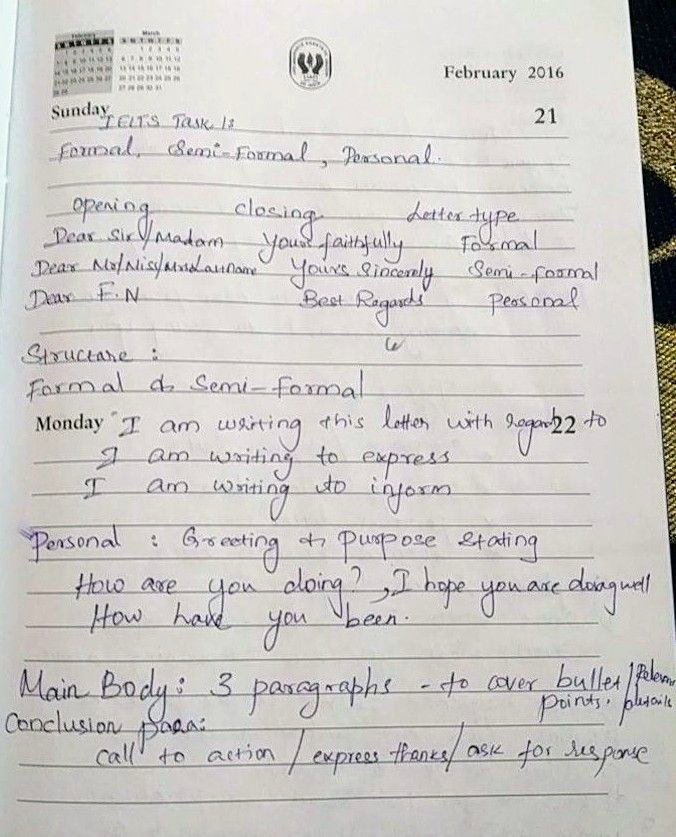 February
March
February 2016
Sunday
21
IELTS Task 1:
Formal, Semi-Formal, Personal.
opening closing Letter type
Dear Sir/Madam Yours faithfully Formal
Dear Mr/Miss/Mrs Lastname Yours Sincerely Semi-formal
Dear F.N Best Regards Personal
Structure :
Formal & Semi-Formal
Monday "I am writing this letter with regard 22 to
I am writing to express
I am writing to inform
Personal : Greeting & Purpose stating
How are you doing?, I hope you are doing well
How have you been.
Main Body: 3 paragraphs - to cover bullet points. / details
Conclusion para:
call to action / express thanks / ask for response